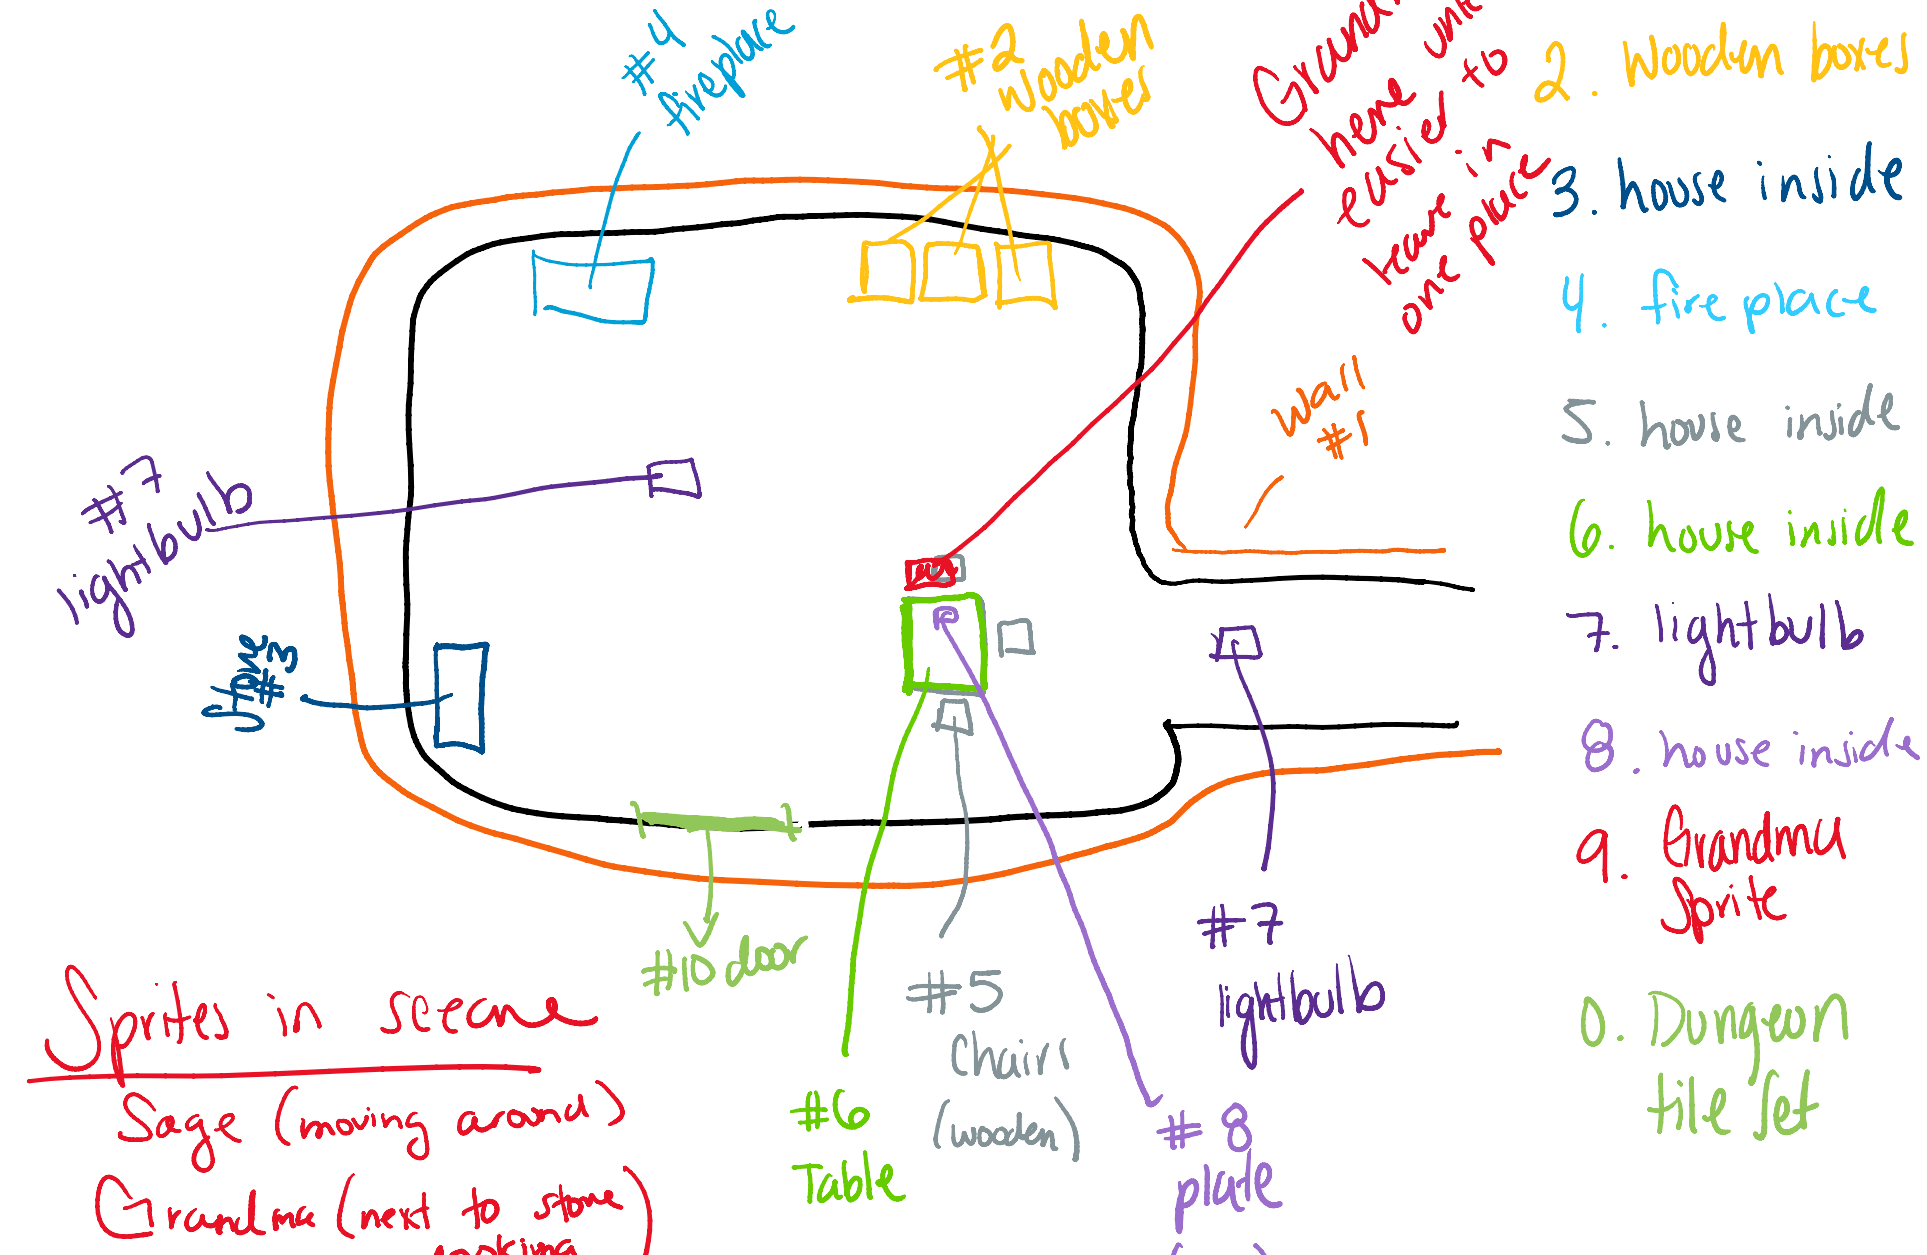 #4
fireplace
#2
Wooden
boxes
here
easier to
leave in
one place
2. Wooden boxes
3. house inside
4. fire place
5. house inside
6. house inside
7. lightbulb
8. house inside
9. Grandma
Sprite
0. Dungeon
tile set
wall
#1
#7
lightbulb
Stone
#3
#10 door
#5
Chairs
(wooden)
#7
lightbulb
#6
Table
#8
plate
Sprites in sceane
Sage (moving around)
Grandma (next to stone